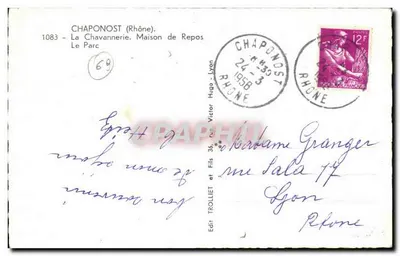 CHAPONOST (Rhône).
1083 - La Chavannerie. Maison de Repos
Le Parc
69
CHAPONOST
24 - 3
1958
RHÔNE
12F
RHÔNE
Edit TROLLIET et Fils 36, Av. Victor Hugo - Lyon
bon souvenir
de mon séjour
Madame Granger
rue Sala 77
Lyon
Rhone